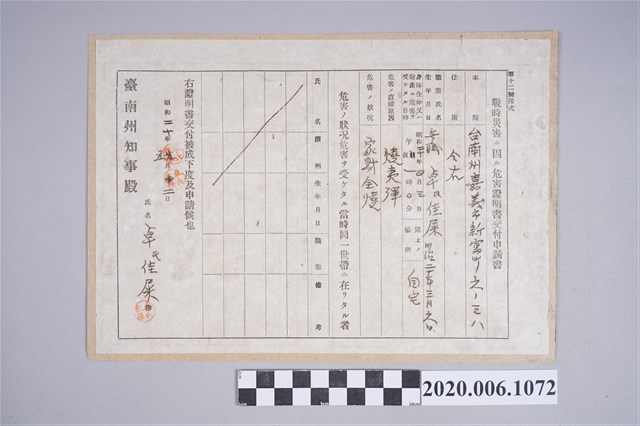 第十二號樣式
戰時災害ニ因ル危害證明書交付申請書
本籍 台南州嘉義市新富町
住所 仝右
職業氏名
生年月日 卓氏佳屎 明治二十年三月
身体生命又ハ財產ニ危害ヲ受ケタル日時
昭和二十年四月三日
午後一時〇分 場所 自宅
危害ノ直接原因 燒夷彈
危害ノ狀況 家財全燒
危害ノ狀況危害ヲ受ケタル當時同一世帶ニ在リタル者
氏名 續柄 生年月日 職業 備考
右證明書交付被成下度及申請候也
昭和二十年 月十二日
氏名 卓氏佳屎
臺南州知事殿
2020.006.1072